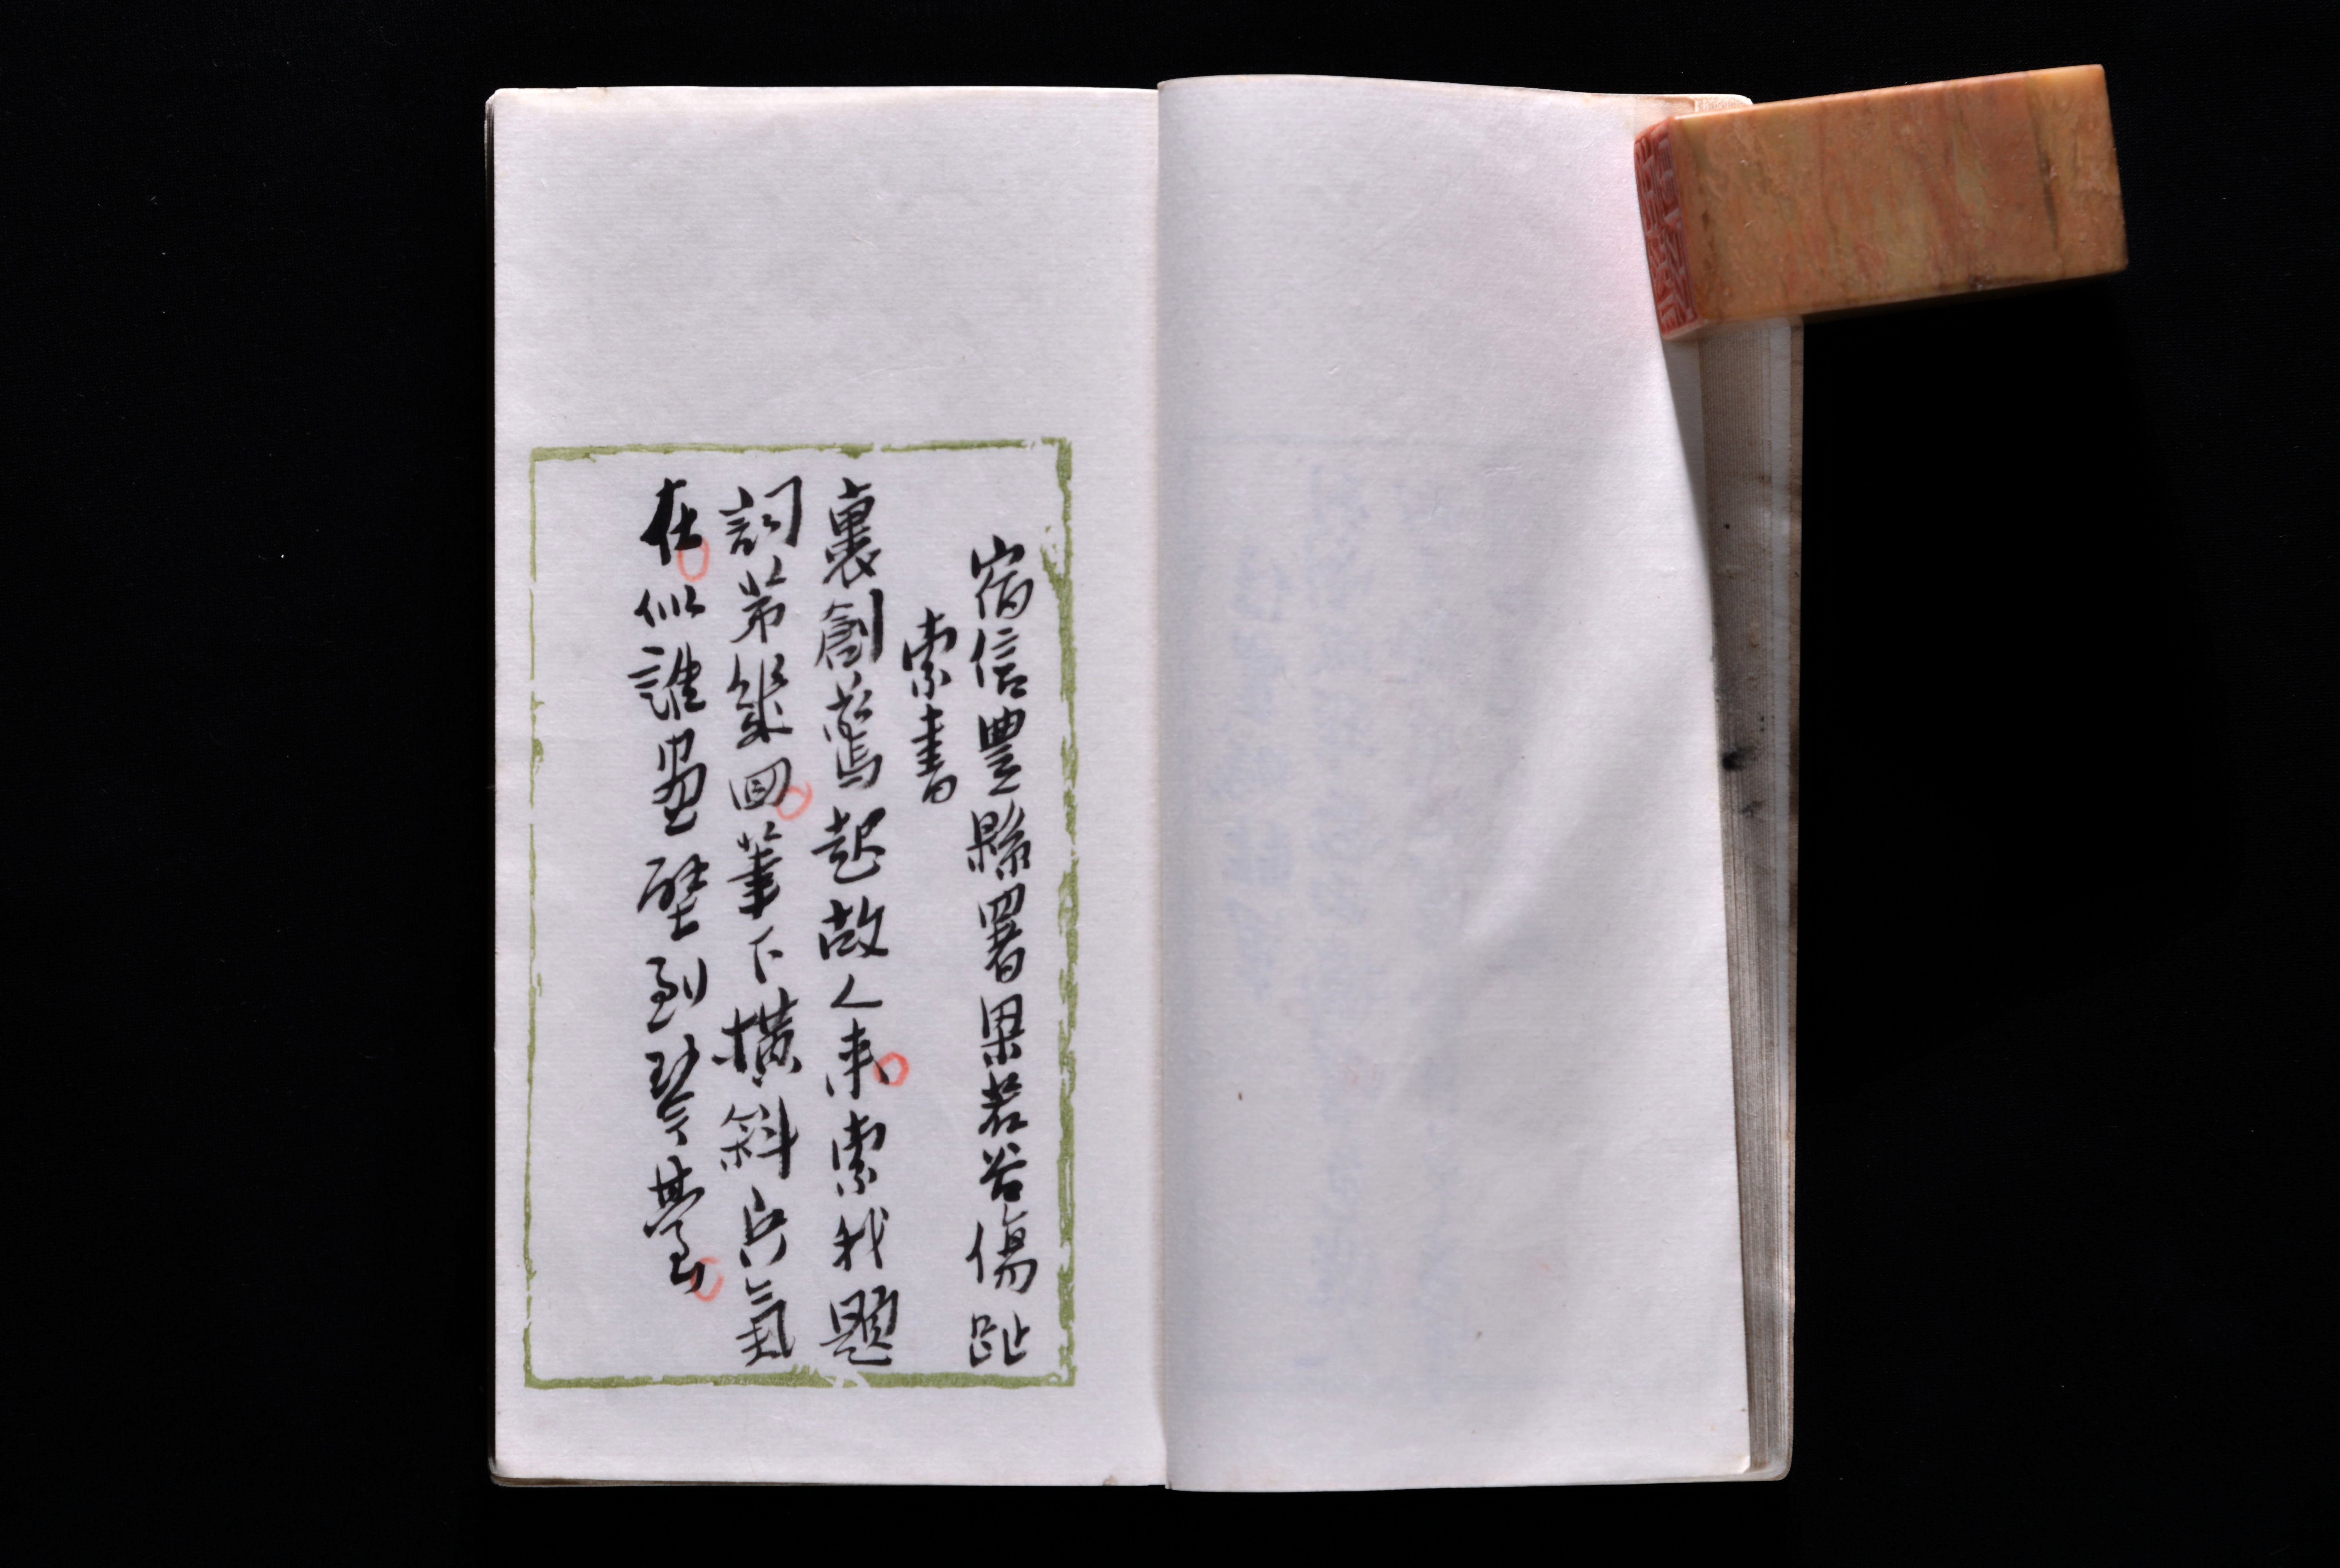 宿信豐縣署果若谷傷趾
索書
裹創驚起故人來索我題
詞第幾回筆下橫斜兵氣
在似誰畫壁到琴臺